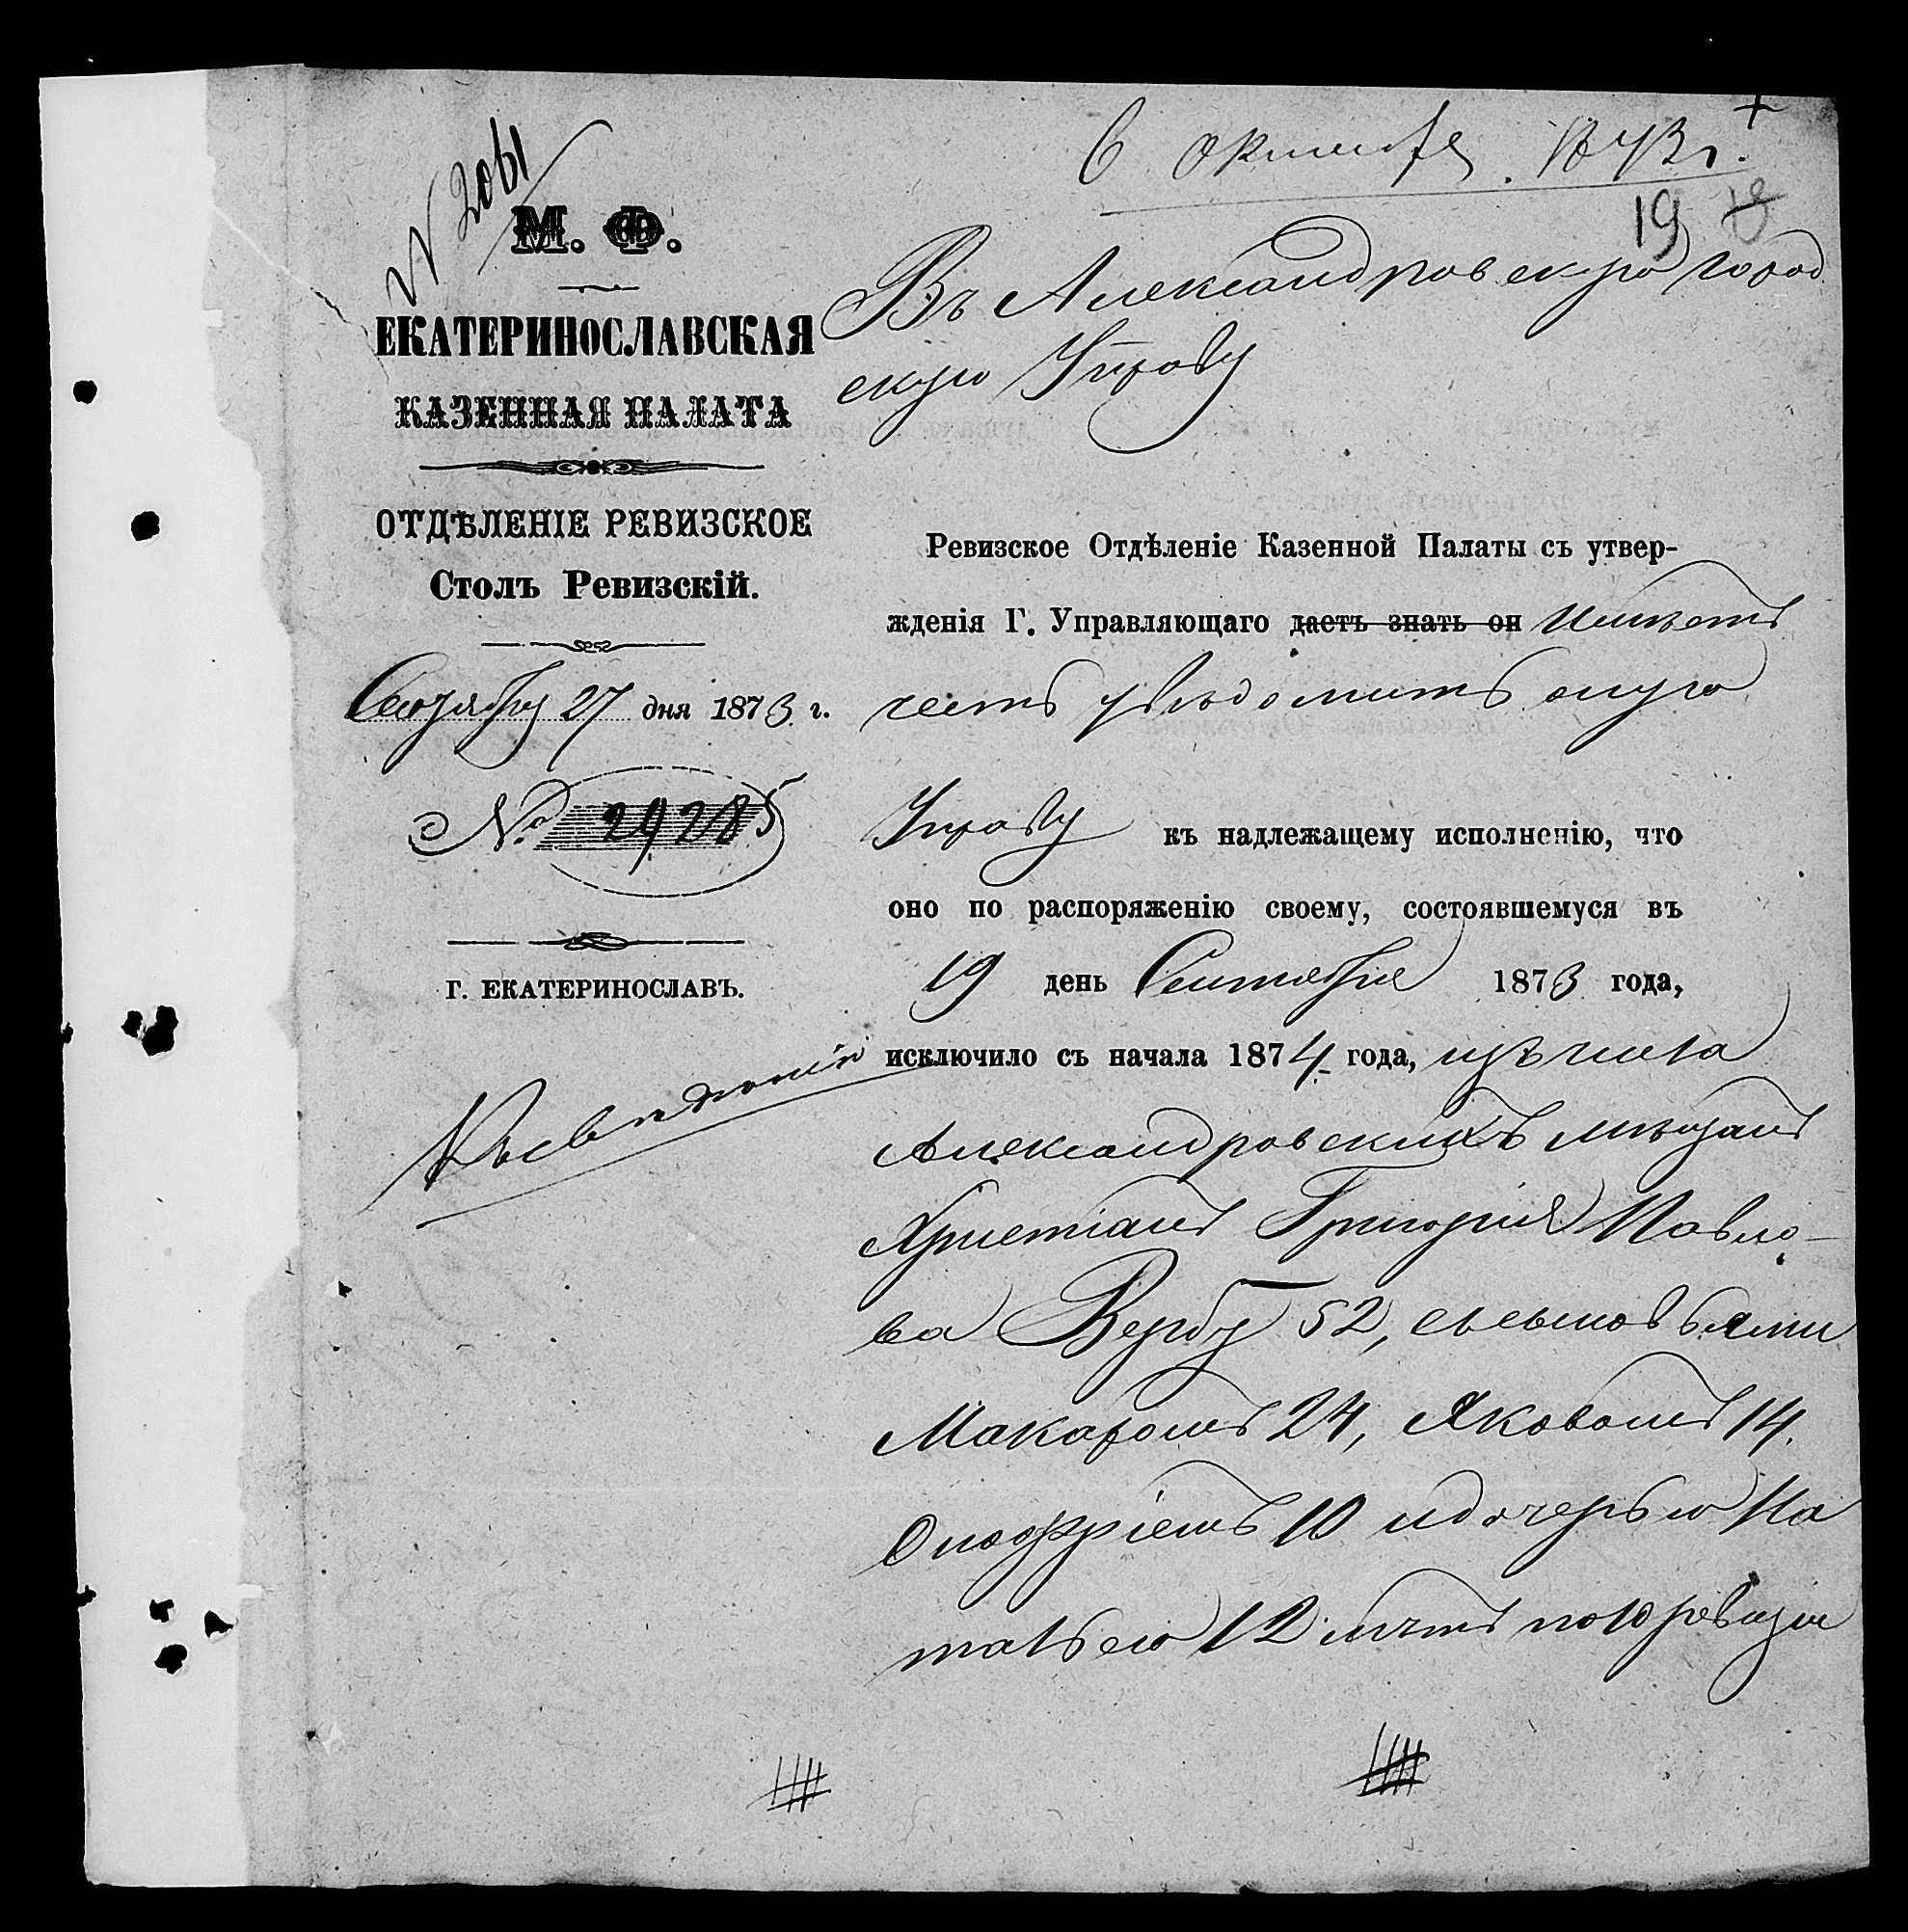 № 2061
М. Ф.
ЕКАТЕРИНОСЛАВСКАЯ
КАЗЕННАЯ ПАЛАТА
ОТДѢЛЕНІЕ РЕВИЗСКОЕ
Столъ Ревизскій.
Сентября 27 дня 1873 г.
№ 29285
Г. ЕКАТЕРИНОСЛАВЪ.
Къ свѣдѣнію
6 октября 1873 г.
19 18
Въ Александровскую город
скую Управу
Ревизское Отдѣленіе Казенной Палаты съ утвер-
жденія Г. Управляющаго даетъ знать он Имѣетъ
честь увѣдомить оную
Управу къ надлежащему исполненію, что
оно по распоряженію своему, состоявшемуся въ
19 день Сентября 1873 года,
исключило съ начала 1874 года, изъ числа
Александровскихъ мѣщанъ
Христіанъ Григорія Павло-
ва Вербу 52, съ сыновьями
Макаромъ 24, Яковомъ 14,
Онофріемъ 10 и дочерью На
тальею 12 лѣтъ по 10 ревизіи